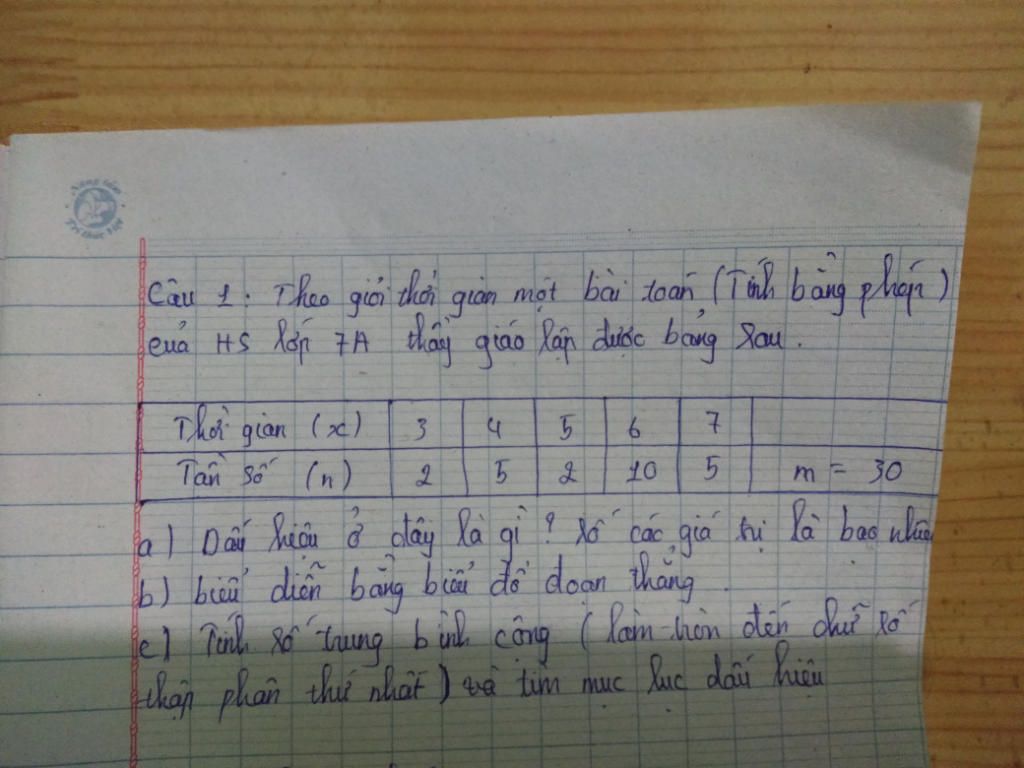 Nâng tầm
Tri thức Việt
Câu 1: Theo giỏi thời gian một bài toán (Tính bằng phút)
của HS lớp 7A thầy giáo lập được bảng sau.
Thời gian (x) 3 4 5 6 7
Tần số (n) 2 5 2 10 5 m = 30
a) Dấu hiệu ở đây là gì? Số các giá trị là bao nhiêu
b) biểu diễn bằng biểu đồ đoạn thẳng.
c) Tính số trung bình cộng (làm tròn đến chữ số
thập phân thứ nhất) và tìm mục lục dấu hiệu